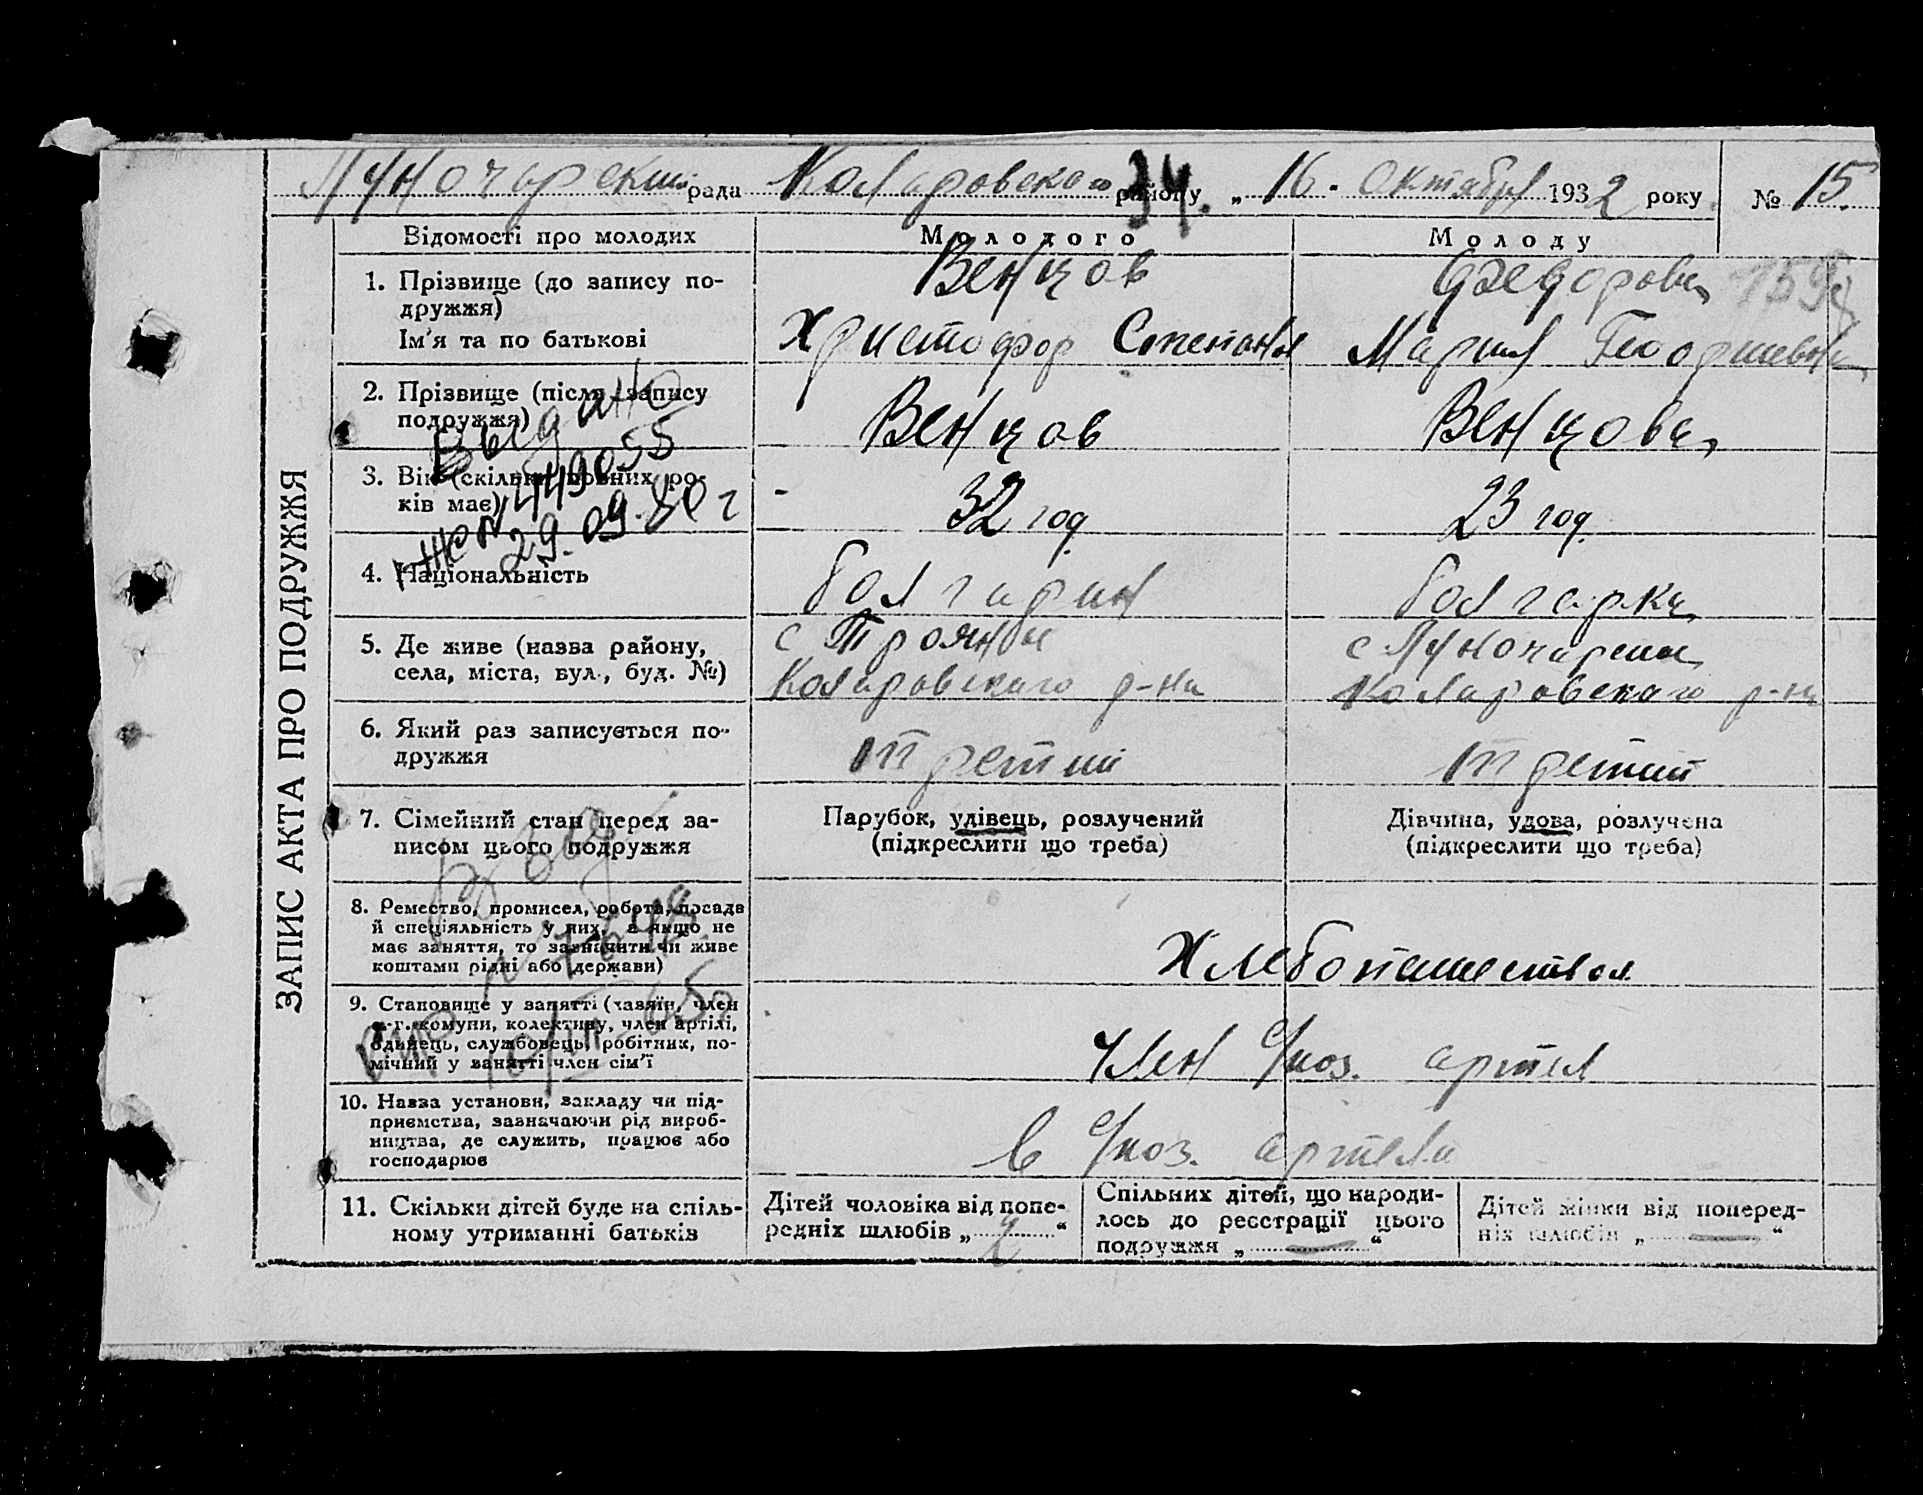 Луночарский рада Коларовского району 34. „ 16. октября 1932 року № 15.
ЗАПИС АКТА ПРО ПОДРУЖЖЯ
Відомості про молодих Молодого Молоду
1. Прізвище (до запису по-
дружжя)
Ім'я та по батькові
Венцов
Христофор Степанов
Федорова
Мария Георгиевна
159
2. Прізвище (після запису
подружжя)
Венцов
Венцова
Выдано
449055
29.09.80 г
3. Вік (скільки повних ро-
ків має)
32 год
23 год
4. Національність
болгарин
болгарка
5. Де живе (назва району,
села, міста, вул., буд. №)
с Трояны
Коларовского р-на
с Луночарск
Коларовского р-на
6. Який раз записується по-
дружжя
третий
третий
7. Сімейний стан перед за-
писом цього подружжя
Парубок, удівець, розлучений
(підкреслити що треба)
Дівчина, удова, розлучена
(підкреслити що треба)
8. Ремество, промисел, робота, посада
й спеціяльність у них, а якщо не
має заняття, то зазначити чи живе
коштами рідні або держави)
Хлебопашеством
9. Становище у занятті (хазяїн, член
с-г. комуни, колективу, член артілі,
одинець, службовець, робітник, по-
мічний у занятті член сім'ї
член с/хоз. артел
10. Назва установи, закладу чи під-
приємства, зазначаючи рід вироб-
ництва, де служить, працює або
господарює
в с/хоз. артела
11. Скільки дітей буде на спіль-
ному утриманні батьків
Дітей чоловіка від попе-
редніх шлюбів „ 2 “
Спільних дітей, що народи-
лось до реєстрації цього
подружжя „ — “
Дітей жінки від поперед-
ніх шлюбів „ — “